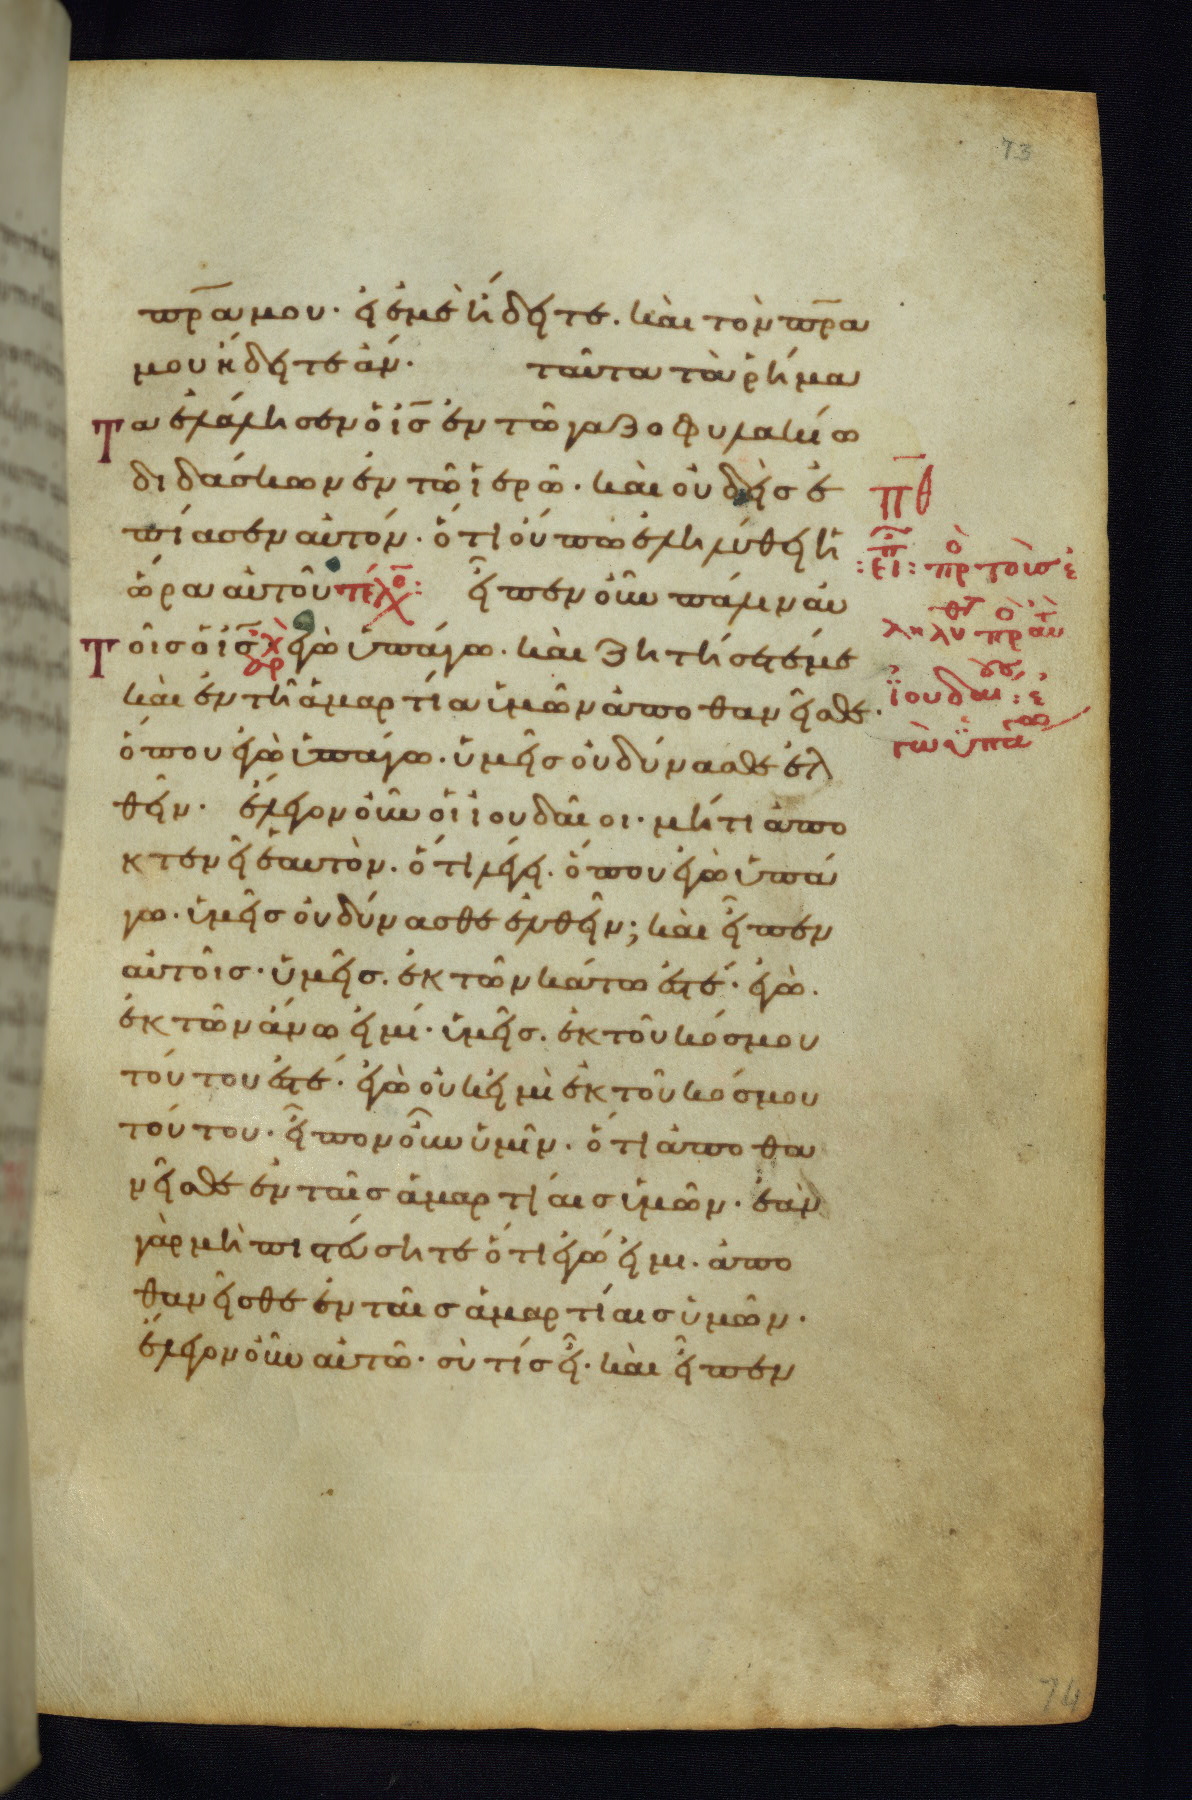 73
πρ̅α μου· εἰ ἐμὲ ἤδειτε. καὶ τὸν πρ̅α
μου ἤδειτε ἄν· ταῦτα τὰ ῥήμα
Τα ἐλάλησεν ὁ ἰσ̅ ἐν τῶ γαζοφυλακίω
διδάσκων ἐν τῶ ἱερῶ· καὶ οὐδεὶσ ἐ
πίασεν αὐτόν· ὅτι οὔπω ἐληλύθει ἡ
ὥρα αὐτοῦ τέλο: εἶπεν οὖν πάλιν αυ
Τοῖσ ὁ ἰσ̅ ἐγὼ ὑπάγω. καὶ ζητήσετέ με
καὶ ἐν τῆ ἁμαρτία ὑμῶν ἀποθανεῖσθε·
ὅπου ἐγὼ ὑπάγω. ὑμεῖσ οὐ δύνασθε ἐλ
θεῖν· ἔλεγον οὖν οἱ ἰουδαῖοι· μήτι ἀπο
κτενεῖ ἑαυτὸν. ὅτι λέγει. ὅπου ἐγὼ ὑπά
γω. ὑμεῖσ οὐ δύνασθε ἐλθεῖν; καὶ εἶπεν
αὐτοῖσ· ὑμεῖσ. ἐκ τῶν κάτω ἐστέ· ἐγὼ.
ἐκ τῶν ἄνω εἰμί· ὑμεῖσ. ἐκ τοῦ κόσμου
τούτου ἐστέ· ἐγὼ οὐκ εἰμὶ ἐκ τοῦ κόσμου
τούτου· εἶπον οὖν ὑμῖν. ὅτι ἀποθα
νεῖσθε ἐν ταῖσ ἁμαρτίαισ ὑμῶν· ἐὰν
γὰρ μὴ πιστεύσητε ὅτι ἐγώ εἰμι. ἀπο
θανεῖσθε ἐν ταῖσ ἁμαρτίαισ ὑμῶν·
ἔλεγον οὖν αὐτῶ· σὺ τίσ εἶ· καὶ εἶπεν
π̅θ
ἰουδαι
74